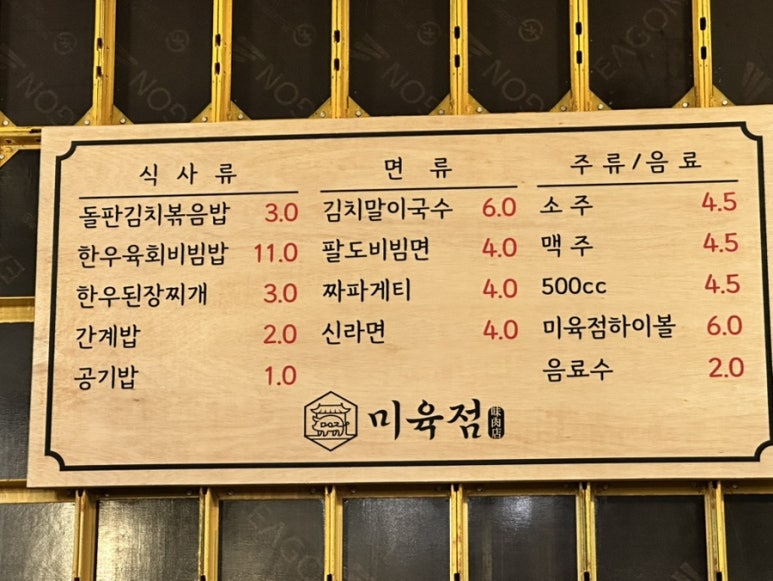 식 사 류
돌판김치볶음밥 3.0
한우육회비빔밥 11.0
한우된장찌개 3.0
간계밥 2.0
공기밥 1.0
면 류
김치말이국수 6.0
팔도비빔면 4.0
짜파게티 4.0
신라면 4.0
주 류 / 음 료
소 주 4.5
맥 주 4.5
500cc 4.5
미육점하이볼 6.0
음료수 2.0
미육점 味肉店